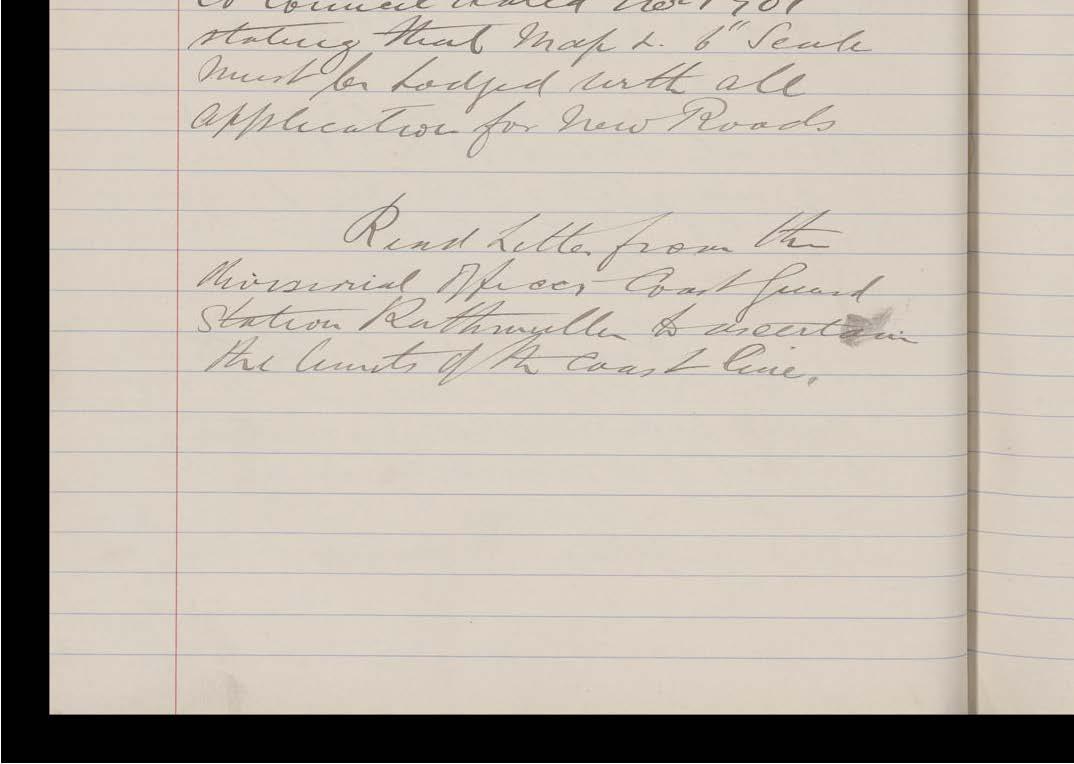 Co Council dated
stating that Map L. 6" Scale
must be Lodged with all
application for New Roads
Read Letter from the
divisional Officer Coast Guard
Station Rathmullen to ascertain
the limits of the coast line.